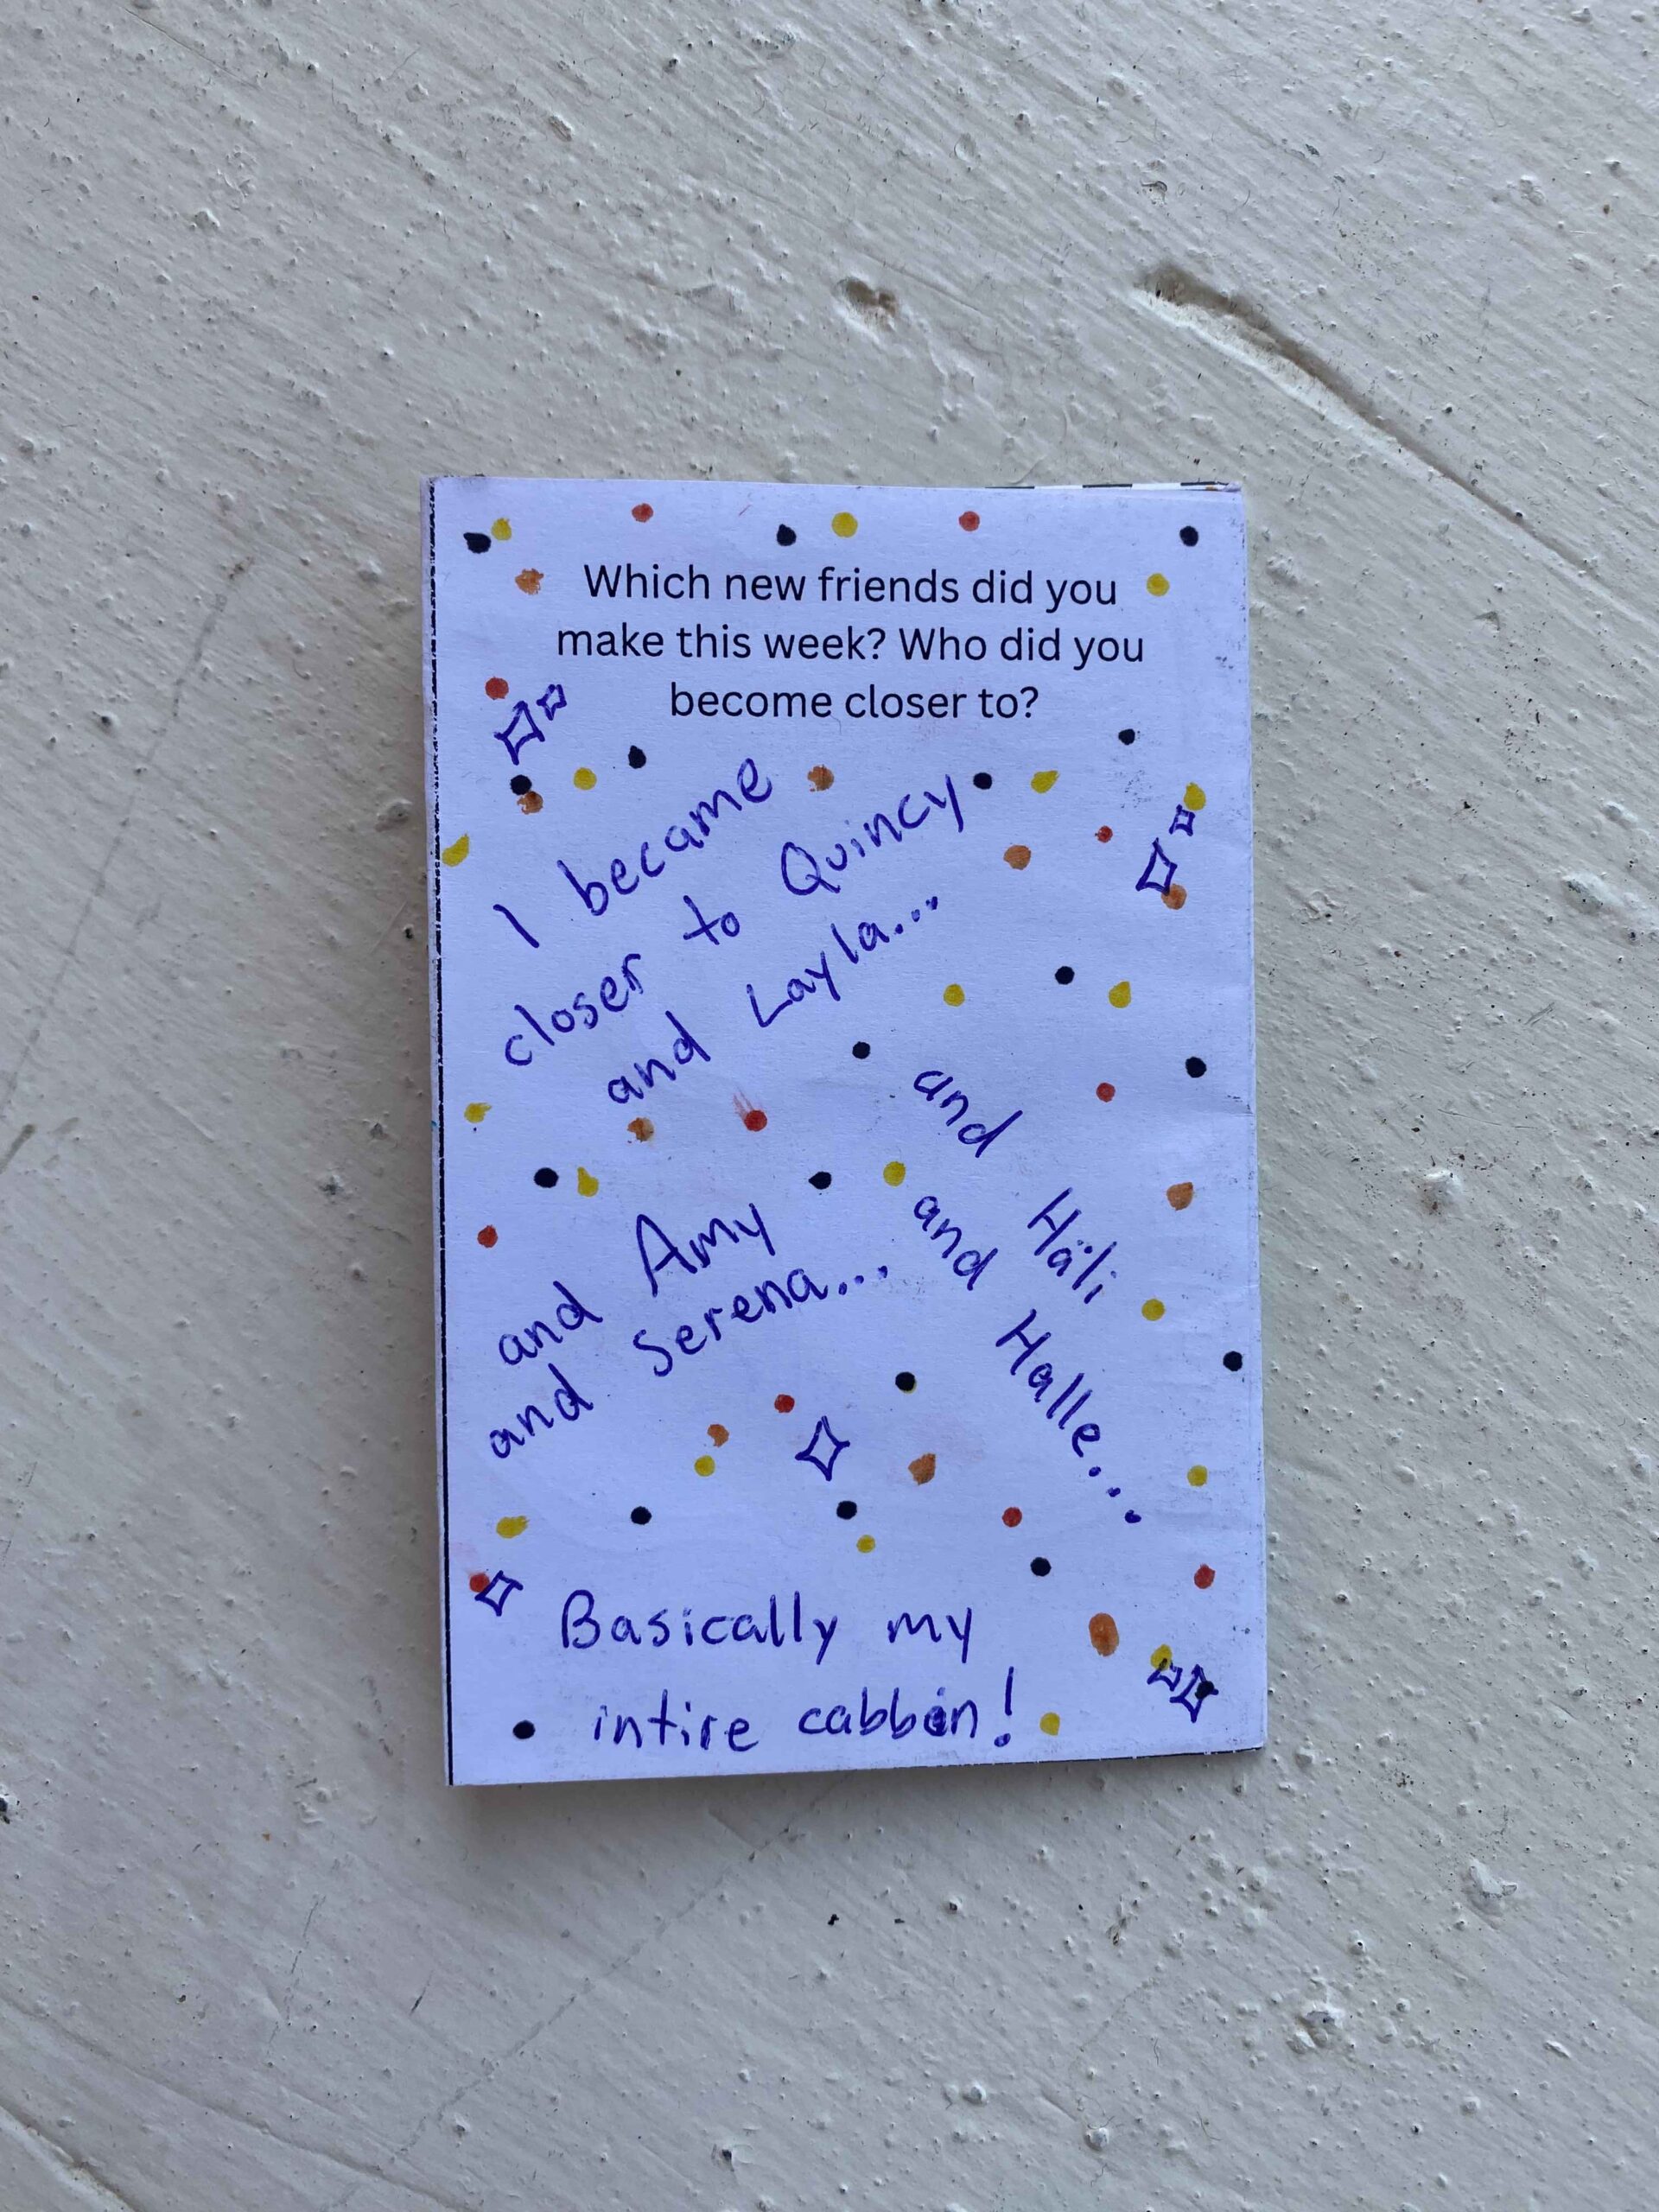 Which new friends did you
make this week? Who did you
become closer to?
I became
closer to Quincy
and Layla...
and Häli
and Halle...
and Amy
and Serena...
Basically my
intire cabbin!